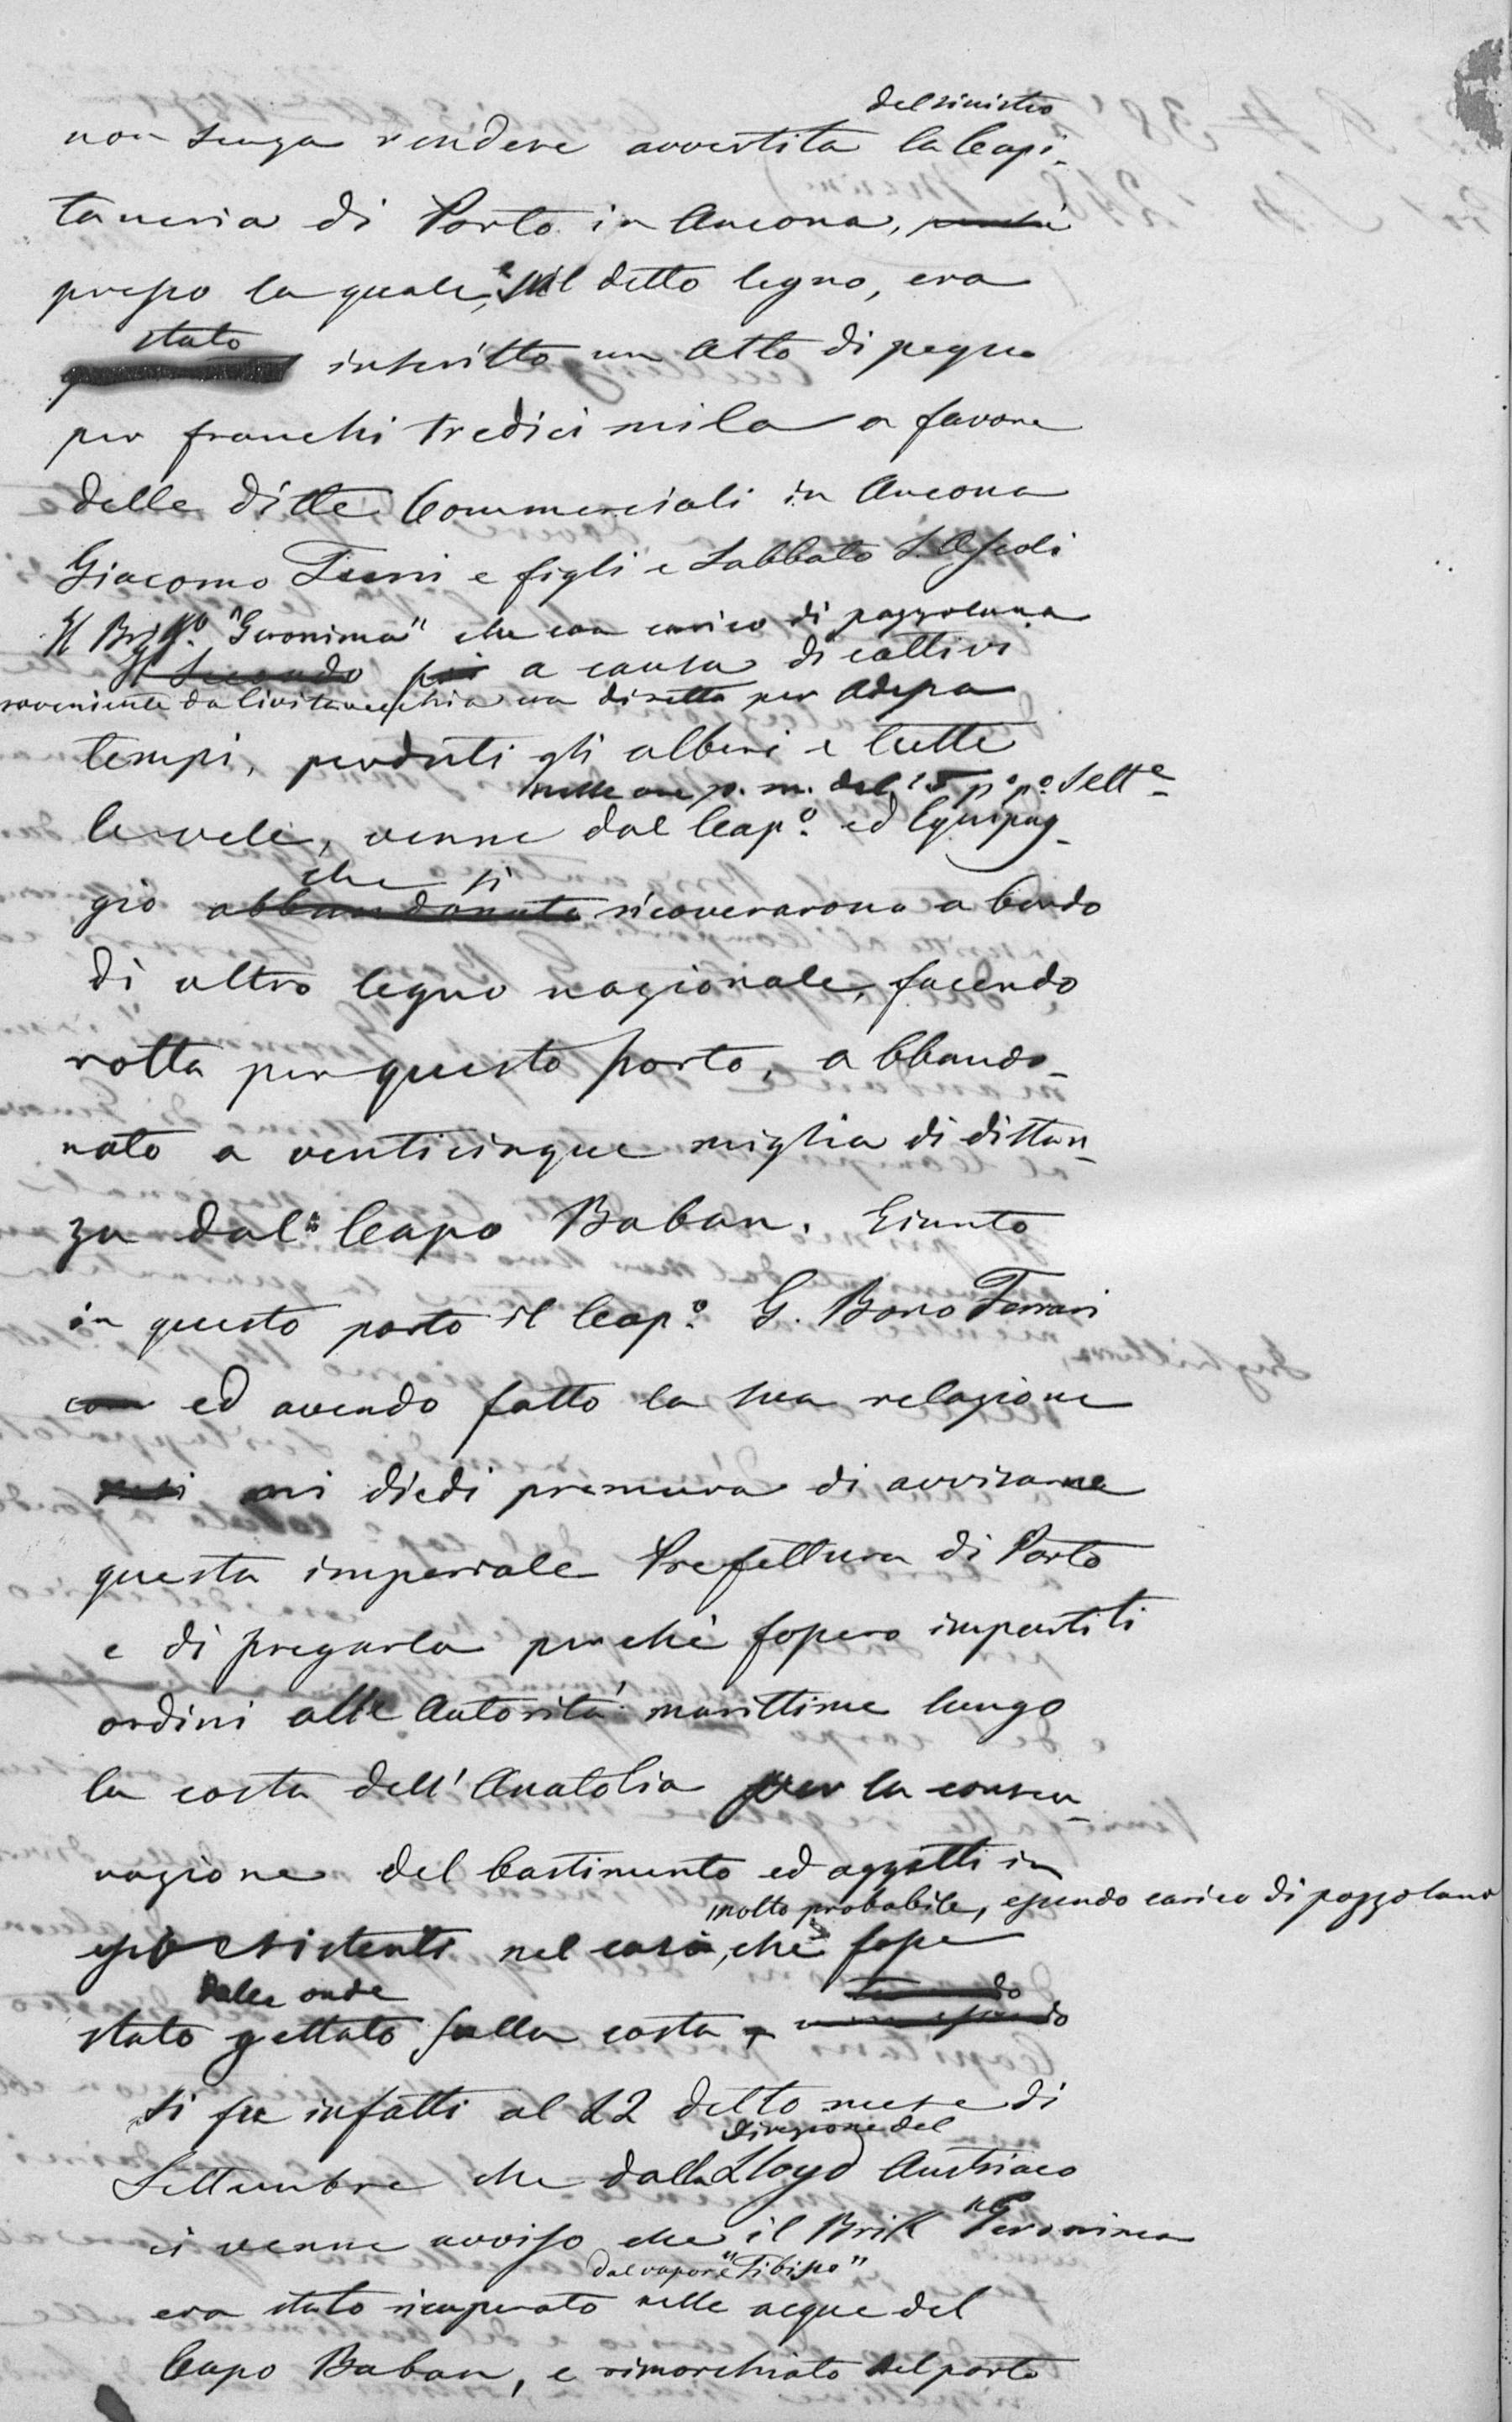 del sinistro
non senza rendere avvertita la Capi-
taneria di Porto in Ancona,
presso la quale, e sul detto legno, era
stato
inscritto un Atto di pegno
per franchi tredici mila a favore
delle ditte Commerciali in Ancona
Giacomo e figli e Sabbato S. Ascoli
Il Brigo. "Geronima" che con carico di pozzolana
Il Secondo poi a causa di cattivi
proveniente da Civitavecchia era diretto per Odessa
tempi, perduti gli alberi e tutte
nelle ore p. m. del 15 po. po. Sette
le vele, venne dal Capo. ed Equipag-
che si
gio abbandonato ricoverarono a bordo
di altro legno nazionale, facendo
rotta per questo porto, abbando-
nato a venticinque miglia di distan-
za dal Capo Baban. Giunto
in questo porto il Capo. G. Bono Ferrari
con ed avendo fatto la sua relazione
mi diedi premura di avvisarne
questa imperiale Prefettura di Porto
e di pregarla perchè fossero impartiti
ordini alle Autorità marittime lungo
la costa dell'Anatolia per la conser-
vazione del bastimento ed oggetti in
molto probabile, essendo carico di pozzolana
esso esistenti nel caso, che fosse
dalle onde
stato gettato sulla costa,
Si fu infatti al 22 detto mese di
Direzione del
Settembre che dalla Lloyd Austriaco
ci venne avviso che il Brik "Geronima
dal vapore "Tibisco"
era stato ricuperato nelle acque del
Capo Baban, e rimorchiato nel porto